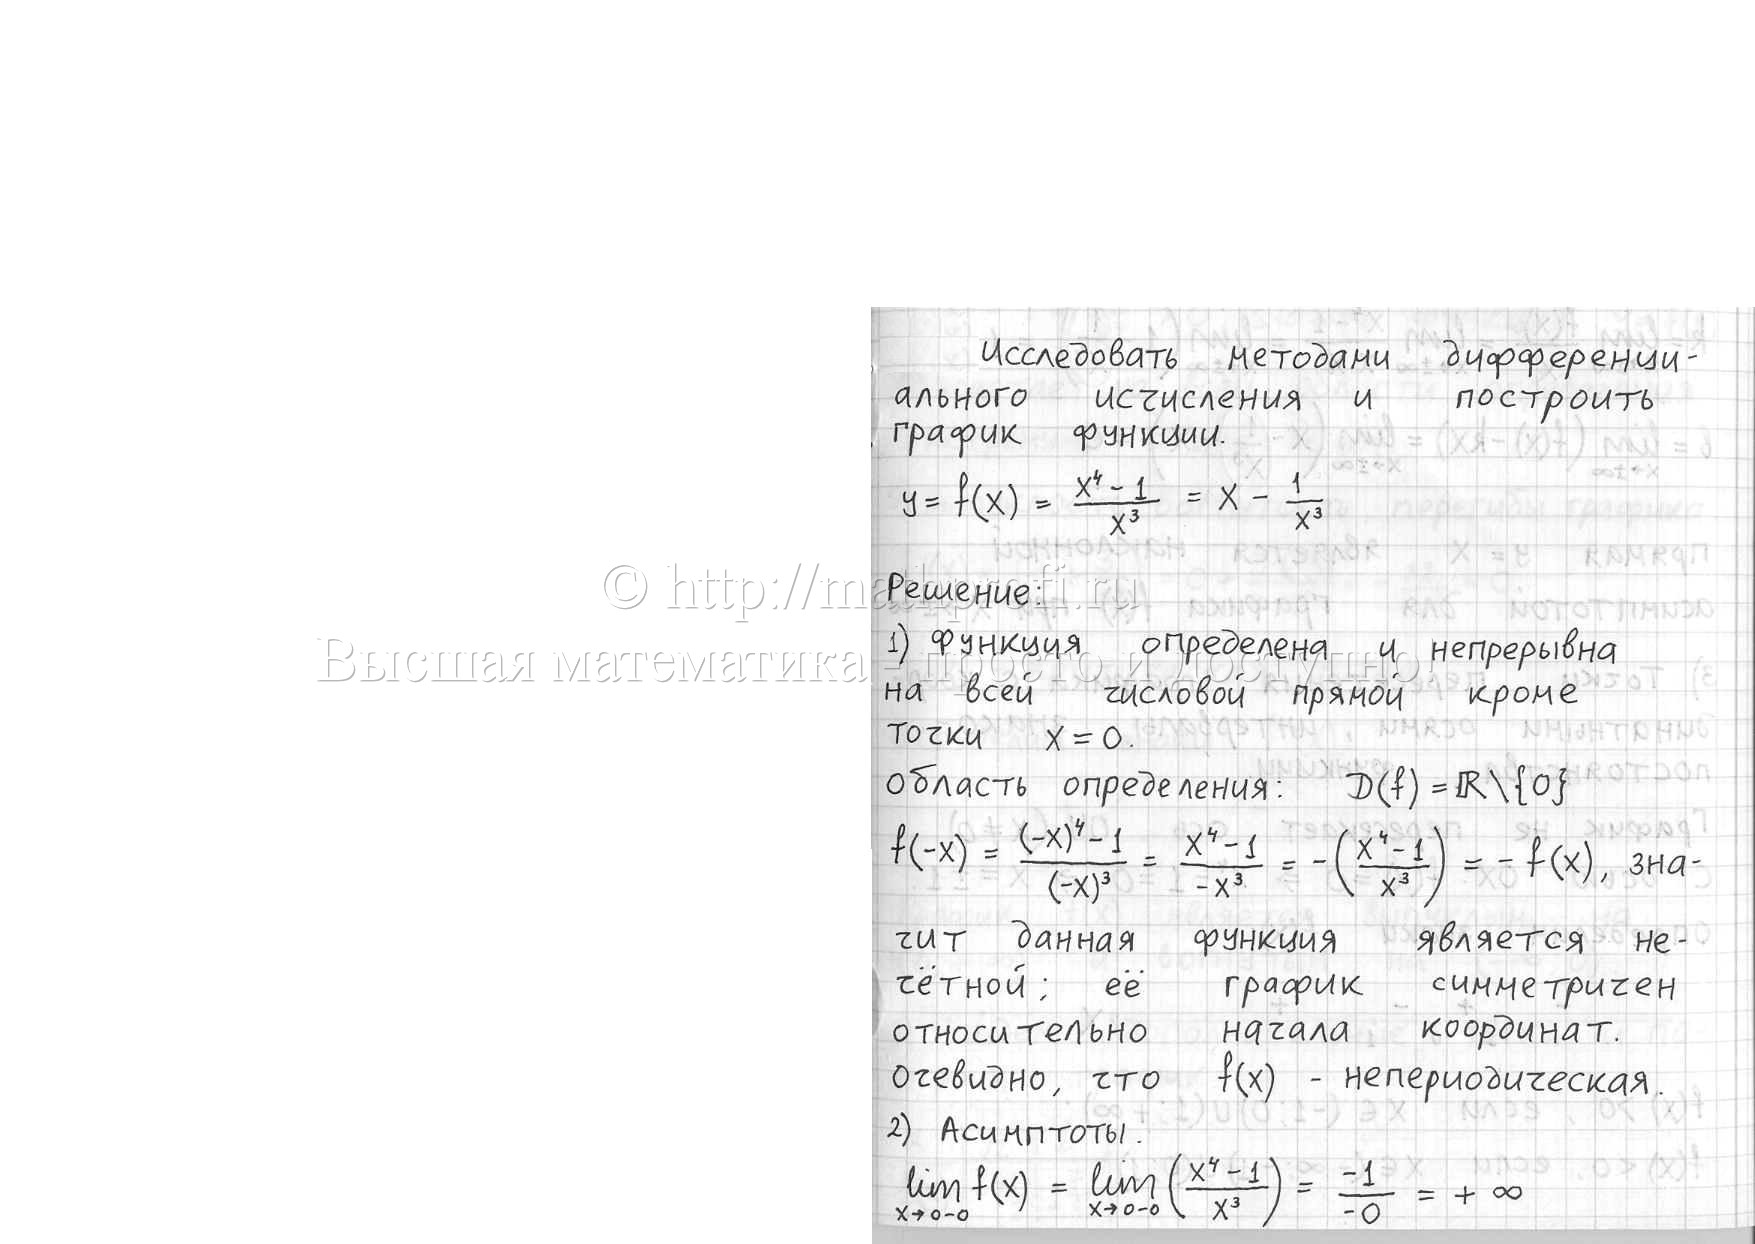 Исследовать методами дифференци-
ального исчисления и построить
график функции.
y = f(x) = (x⁴ - 1)/x³ = x - 1/x³
© http://mathprofi.ru
Решение:
1) Функция определена и непрерывна
Высшая математика - просто и доступно!
на всей числовой прямой кроме
точки x = 0.
Область определения: D(f) = ℝ\{0}
f(-x) = ((-x)⁴ - 1)/(-x)³ = (x⁴ - 1)/(-x³) = -((x⁴ - 1)/x³) = - f(x), зна-
чит данная функция является не-
чётной; её график симметричен
относительно начала координат.
Очевидно, что f(x) - непериодическая.
2) Асимптоты.
lim x→0-0 f(x) = lim x→0-0 ((x⁴ - 1)/x³) = -1/-0 = + ∞